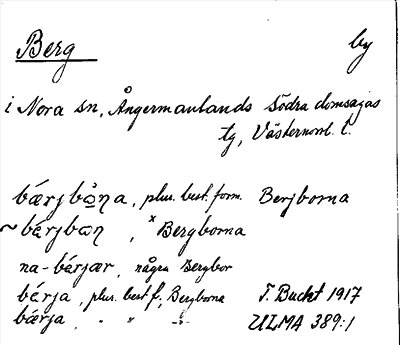 Berg by
i Nora sn, Ångermanlands södra domsagas
tg, Västernorrl. l.
bærjbω̊ŋa, plur. best. form. Berjborna
~ bérjbωŋ, ˣ Bergborna
na-bérjær, några Bergbor
bérja, plur. best f., Bergborna T. Bucht 1917
bærja, " " " ULMA 389:1